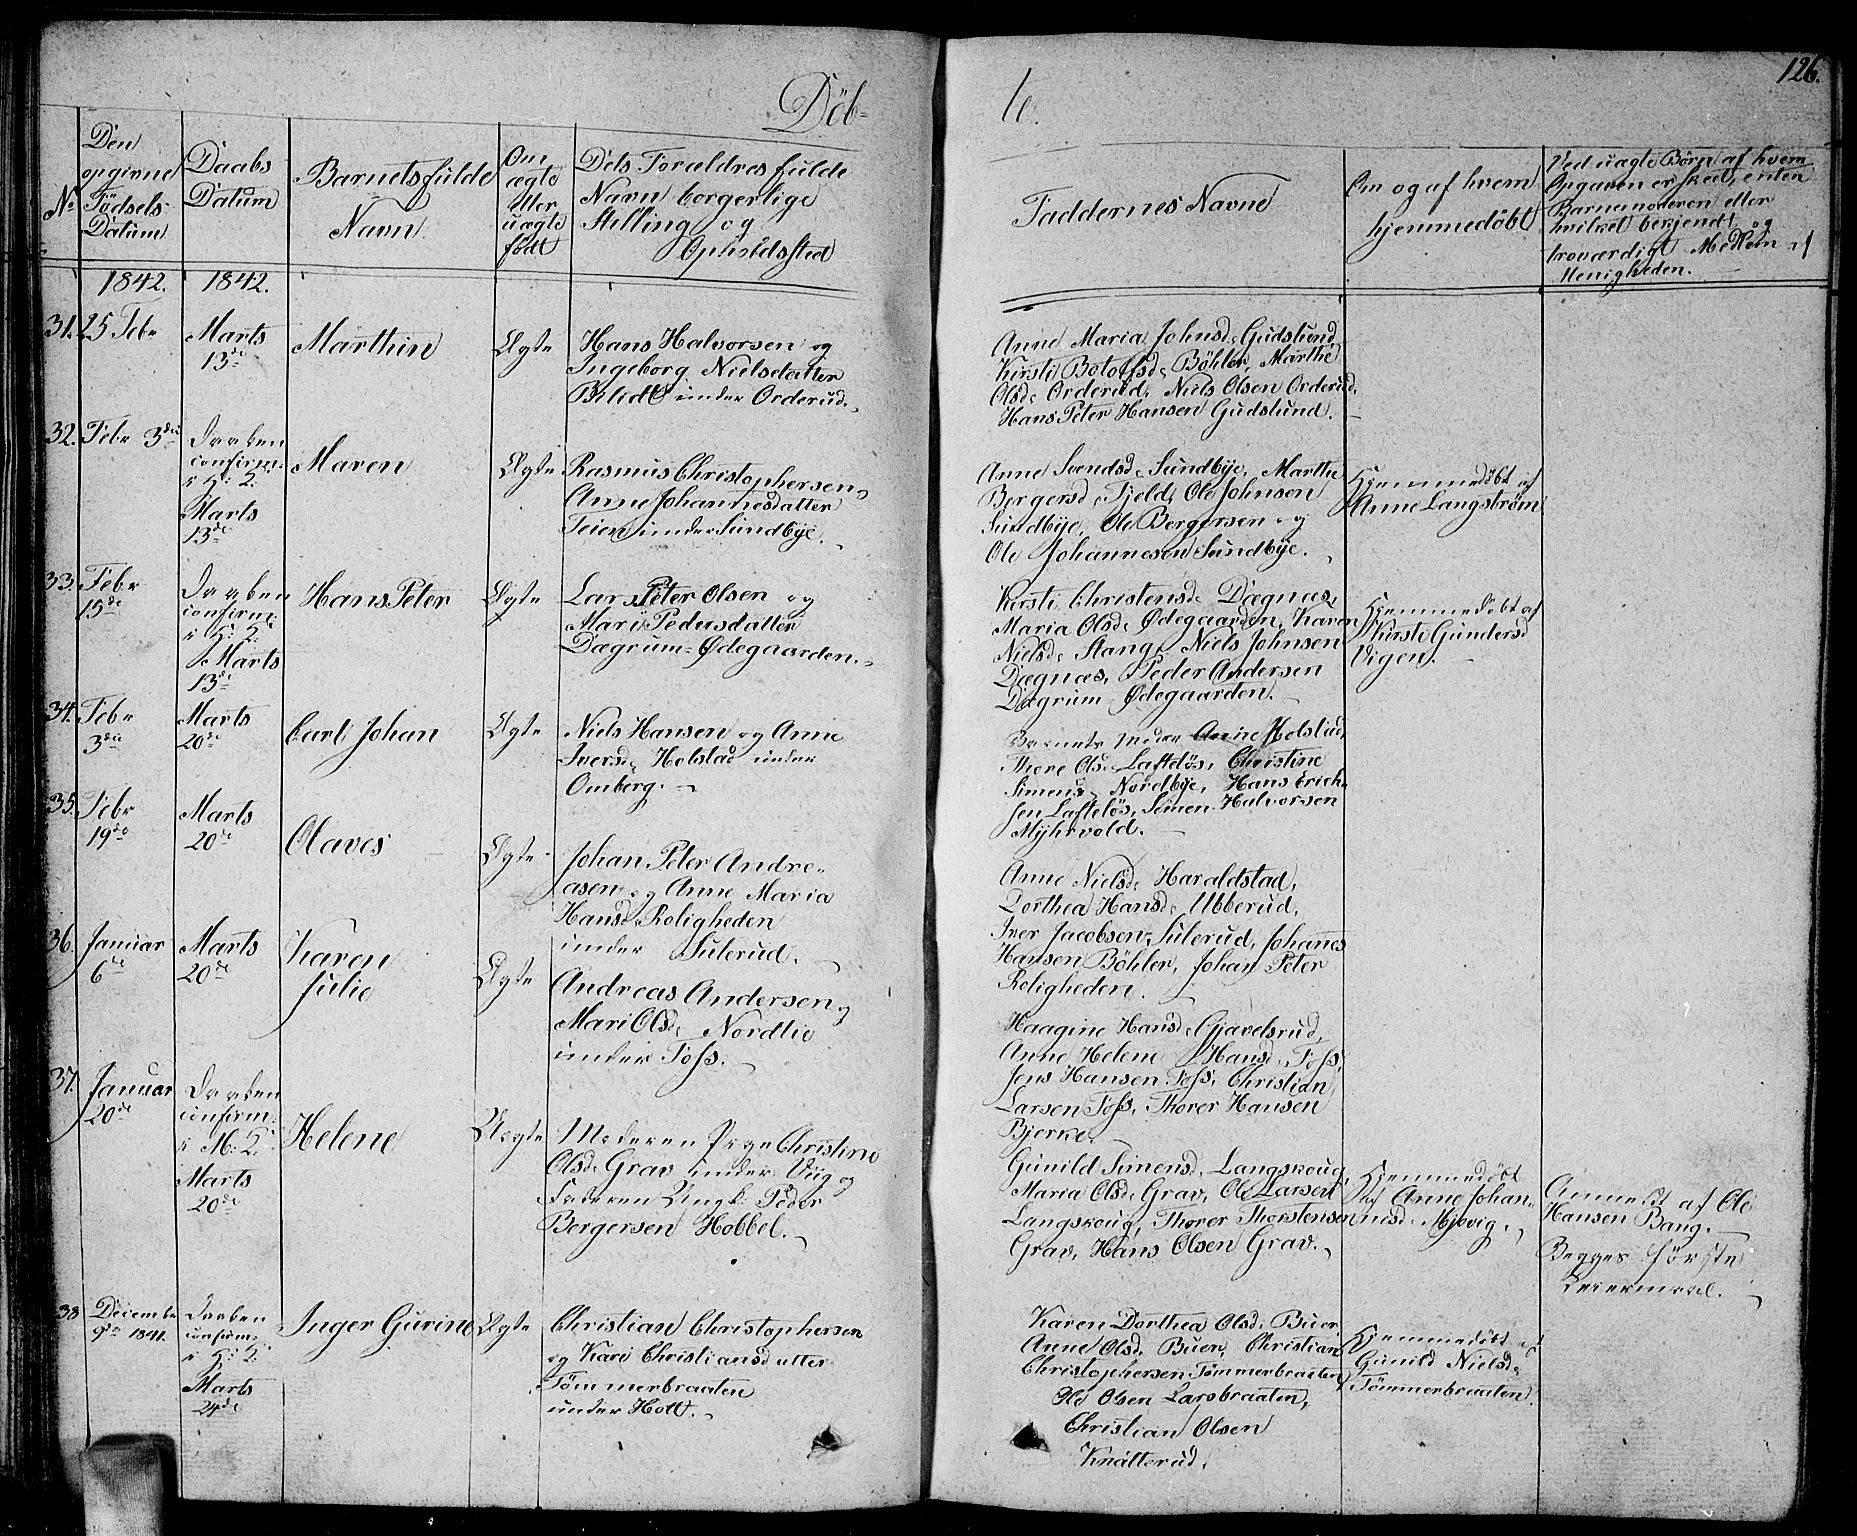 Döb-
te.
126.
No
Den opgivne Fødsels Datum
Daabs Datum
Barnets fulde Navn
Om ægte eller uægte født
Dets Forældres fulde Navn borgerlige Stilling og Opholdssted
Faddernes Navne
Om og af hvem hjemmedöbt
Ved uægte Børn af hvem Opgaven er skeet, enten Barnemoderen eller hvilket bekjendt og troværdigt Medlem af Menigheden.
1842.
1842.
31.
25 Febr
Marts
13de
Marthin
Ægte
Hans Halvorsen og
Ingeborg Nielsdatter
Blidt under Orderud.
Anne Maria Johnsd. Gudslund,
Kirsti Botolfsd. Böhler, Marthe
Olsd. Orderud, Niels Olsen Orderud,
Hans Peter Hansen Gudslund.
32.
Febr 3die
Daaben
confirm.
i H: K:
Marts
13de
Maren
Ægte
Rasmus Christophersen
Anne Johannesdatter
Teien under Sundbye.
Anne Svendsd. Sundbye, Marthe
Bergersd. Fjeld, Ole Johnsen
Sundbye, Ole Bergersen og
Ole Johannesen Sundbye.
Hjemmedöbt af
Anne Langström
33.
Febr
15de
Daaben
confirm.
i H: K:
Marts
13de
Hans Peter
Ægte
Lars Peter Olsen og
Mari Pedersdatter
Dægrum-Ødegaarden.
Kirsti Christensd. Dægnæs,
Maria Olsd. Ødegaarden, Karen
Nielsd. Stang, Niels Johnsen
Dægnæs, Peder Andersen
Dægrum-Ødegaarden.
Hjemmedöbt af
Kirsti Gundersd
Vigen.
34.
Febr
3die
Marts
20de
Carl Johan
Ægte
Niels Hansen og Anne
Iversd. Holstad under
Omberg.
Barnets Moder Anne Holstad,
Thore Olsd. Lofteløs, Christine
Simensd. Nordbye, Hans Erich-
sen Lofteløs, Simen Halvorsen
Myhrvold.
35.
Febr
19de
Marts
20de
Olaves
Ægte
Johan Peter Andre-
asen og Anne Maria
Hansd. Roligheden
under Sulerud.
Anne Nielsd. Haraldstad,
Dorthea Hansd. Ubberud,
Iver Jacobsen Sulerud, Johannes
Hansen Böhler, Johan Peter
Roligheden.
36.
Januar
6de
Marts
20de
Karen
Julie
Ægte
Andreas Andersen og
Mari Olsd. Nordlie
under Foss.
Haagine Hansd. Gjavelsrud,
Anne Helene Hansd. Foss,
Jens Hansen Foss, Christian
Larsen Foss, Thorer Hansen
Bjerke.
37.
Januar
20de
Daaben
confirm.
i M: K:
Marts
20de
Helene
Uægte
Moderen Pige Christine
Olsd. Grav under Viig og
Faderen Ungk: Peder
Bergersen Hobbel.
Gunild Simensd. Langskoug,
Maria Olsd. Grav, Ole Larsen
Langskoug, Thorer Thorstensen
Grav, Hans Olsen Grav.
Hjemmedöbt
af Anne Johan-
nesd. Mjøvig.
Anmeldt af Ole
Hansen Bang.
Begges første
Leiermaal.
38
Decembr
9de 1841.
Daaben
confirm.
i H: K:
Marts
24de
Inger Gurine
Ægte
Christian Christophersen
og Kari Christiansdatter
Tömmerbraaten
under Holt.
Karen Dorthea Olsd. Buer,
Anne Olsd. Buer, Christian
Christophersen Tömmerbraaten,
Ole Olsen Larsbraaten,
Christian Olsen
Knatterud.
Hjemmedöbt af
Gunild Nielsd.
Tömmerbraaten.